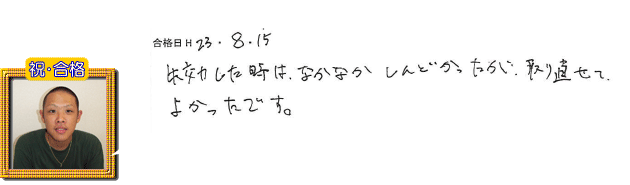 合格日 H 23.8.15
祝・合格
失効した時は、なかなかしんどかったが、取り直せて、
よかったです。